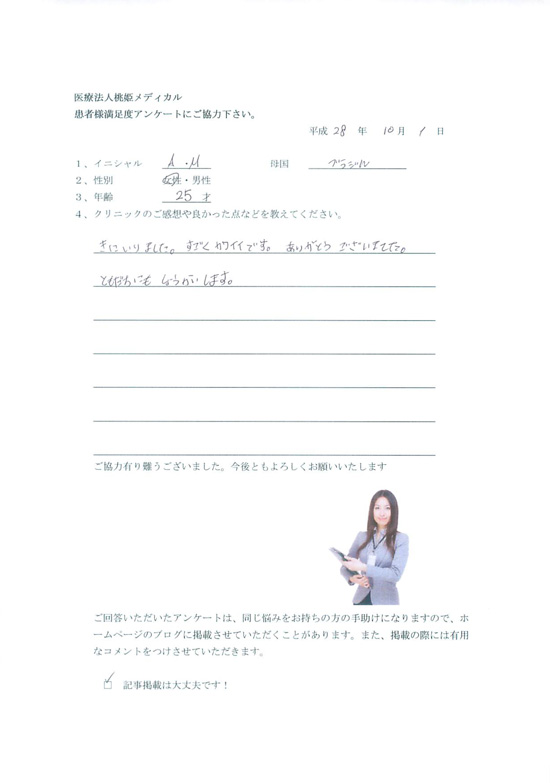 医療法人桃姫メディカル
患者様満足度アンケートにご協力下さい。
平成 28 年 10 月 1 日
1、イニシャル A・M 母国 ブラジル
2、性別 女性・男性
3、年齢 25 才
4、クリニックのご感想や良かった点などを教えてください。
きにいりました。すごくカワイイです。ありがとうございました。
ともだちにもしょうかいします。
ご協力有り難うございました。今後ともよろしくお願いいたします
ご回答いただいたアンケートは、同じ悩みをお持ちの方の手助けになりますので、ホ
ームページのブログに掲載させていただくことがあります。また、掲載の際には有用
なコメントをつけさせていただきます。
☑ 記事掲載は大丈夫です！